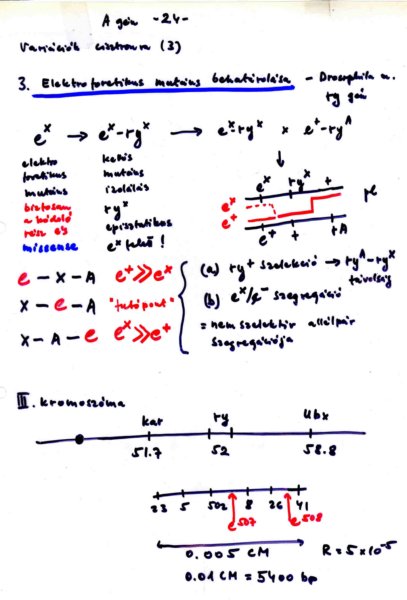 A gén -24-
Variációk cisztronra (3)
3. Elektroforetikus mutáns behatárolása - Drosophila m.
ry gén
eˣ → eˣ-ryˣ → eˣ-ryˣ × e⁺-ryᴬ
elektro
foretikus
mutáns
biztosan
a kódoló
rész és
missense
kettős
mutáns
izolálás
ryˣ
episztatikus
eˣ felső!
eˣ ryˣ +
eˣ
e⁺
e⁺ + +A
pl
e - X - A e⁺≫eˣ
X - e - A "futópont"
X - A - e eˣ≫e⁺
(a) ry⁺ szelekció → ryᴬ-ryˣ
távolság
(b) eˣ/e⁻ szegregáció
= nem szelektív allélpár
szegregációja
III. kromoszóma
kar ry Ubx
51.7 52 58.8
23 5 502 8 26 41
e507 e508
0.005 CM R = 5×10⁻⁵
0.01 CM = 5400 bp